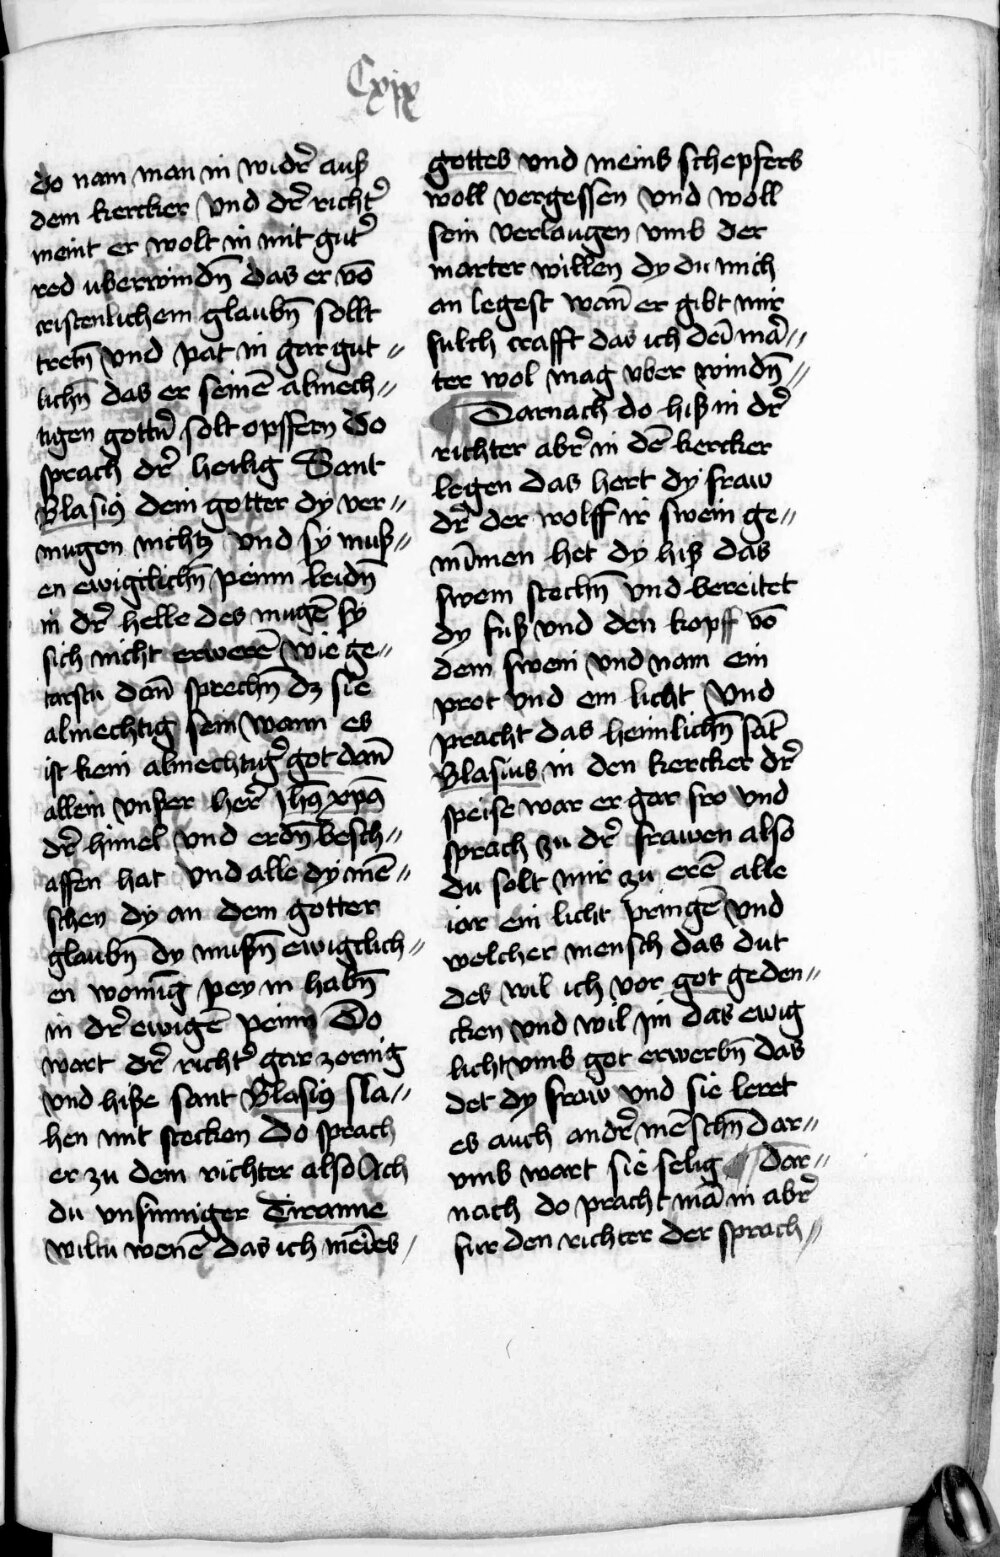 Cxix
do nam man in widr̄ auß
dem kercker Vnd dr̄ richt̄
meint er wolt in mit gut̄
red uberwindn̄ das er vō
cristenlichem glaubn̄ sollt
tretn̄ vnd pat in gar gut //
lichn̄ das er seinē almech //
tigen gottn̄ solt opffern Do
sprach dr̄ heilig Sant
Blasiꝯ dem gotter dy ver //
mugen nichtz vnd sy muß //
en ewigclichn̄ peinn leidn̄
in dr̄ helle des mugē sy
sich nicht erwerē wie ge //
tarstu dan̄ sprechn̄ dz sie
almechtig sein wann es
ist kein almechtiḡ got dan̄
allein vnßer her̄ Jhꝯ xpꝯ
dr̄ himel vnd erdn̄ besch //
affen hat vnd alle dy mē //
schen dy an dem gotter
glaubn̄ dy mußn̄ ewigclich //
en wonūg pey in habn̄
in dr̄ ewigē peinn Do
wart dr̄ richt̄ gar zornig
vnd hiße sant Blasiꝯ sla //
hen mit stecken Do sprach
er zu dem richter also Ach
du vnsinniger Tiranne
wiltu wenē das ich mēīes /
gottes vnd meins schepfers
woll vergessen vnd woll
sein verlaugen vmb der
marter willen dy du mich
an legest wan̄ er gibt mir
sulch crafft das ich dēī mar̄ //
ter wol mag vber windn̄ //
Darnach do hiß in dr̄
richter abr̄ in dē kercker
legen das hort dy fraw
dr̄ der wolff ir swein ge //
nūmen het dy hiß das
swein stechn̄ vnd bereitet
dy fuß vnd den kopff vō
dem swein vnd nam ein
prot vnd ein licht Vnd
pracht das heimlichn̄ sāt
Blasius in den kercker dr̄
speise war er gar fro vnd
sprach zu dr̄ frawen also
du solt mir zu erē alle
iar ein licht pringē vnd
welcher mensch das dut
des wil ich vor got geden //
cken vnd wil ym das ewig
licht vmb got erwerbn̄ das
det dy fraw vnd sie leret
es auch andr̄ mēschn̄ Dar //
vmb wart sie selig Dar //
nach do pracht mā in abr̄
fur den richter der sprach //